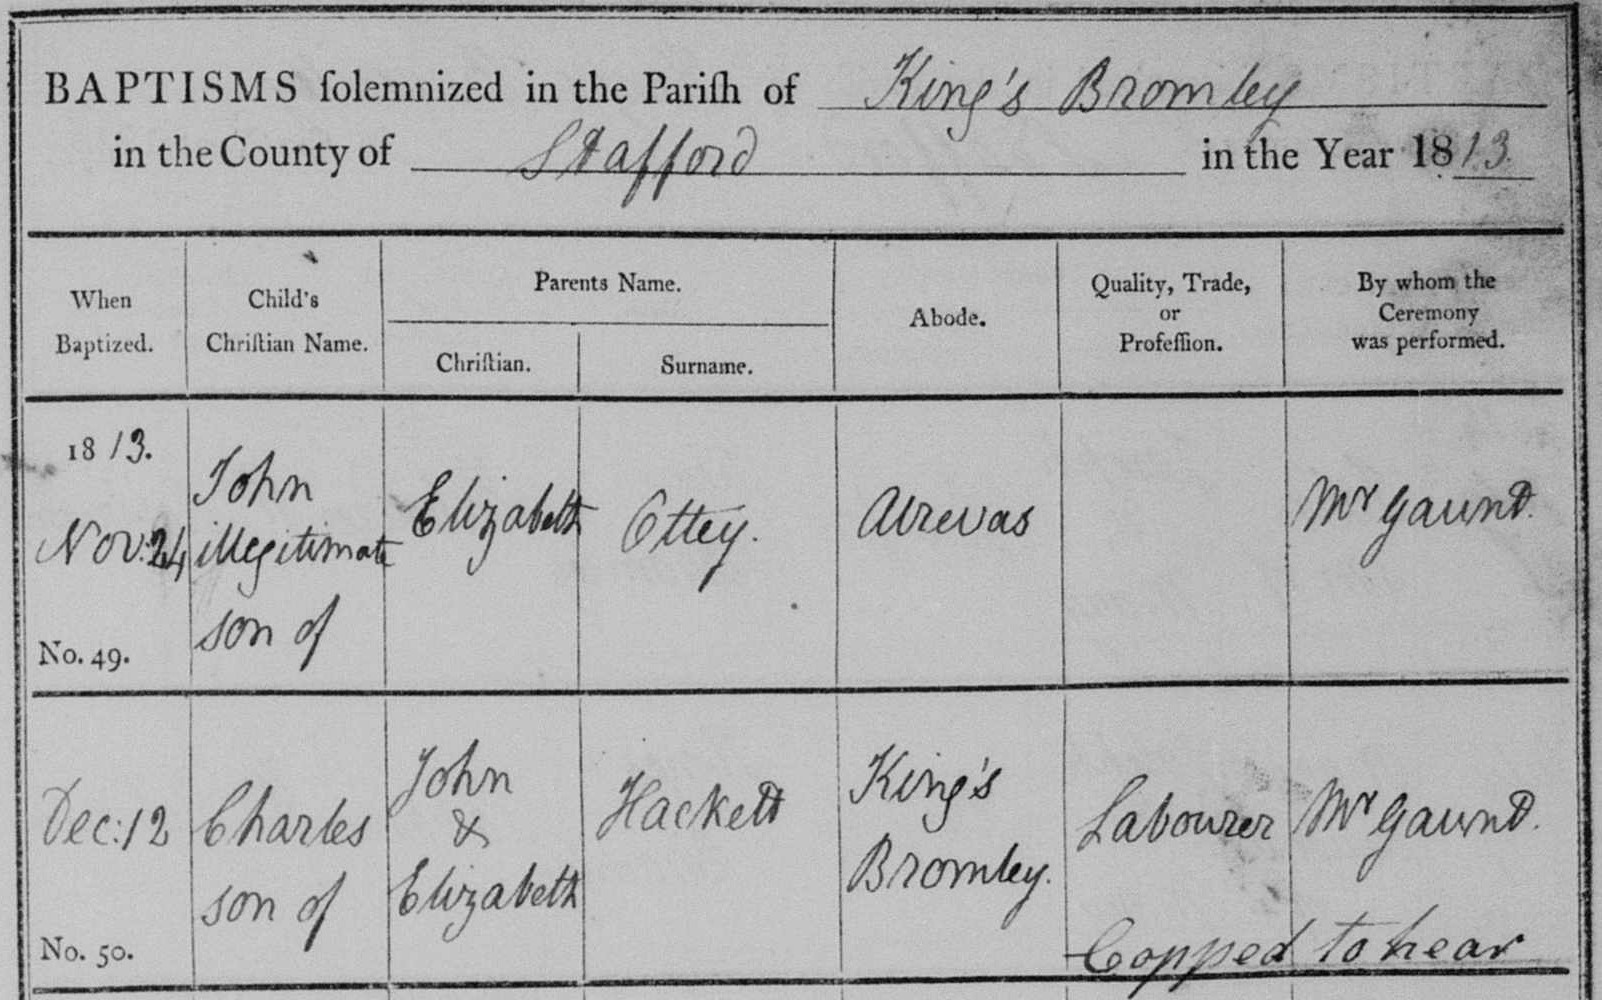 BAPTISMS solemnized in the Parish of King's Bromley
in the County of Stafford in the Year 1813.
When Baptized.
Child's Christian Name.
Parents Name.
Christian.
Surname.
Abode.
Quality, Trade, or Profession.
By whom the Ceremony was performed.
1813.
Nov: 24
No. 49.
John
illegitimate
son of
Elizabeth
Ottey.
Alrevas
Mr Gaunt.
Dec: 12
No. 50.
Charles
son of
John
&
Elizabeth
Hackett
King's
Bromley.
Labourer
Mr Gaunt.
Copped to hear